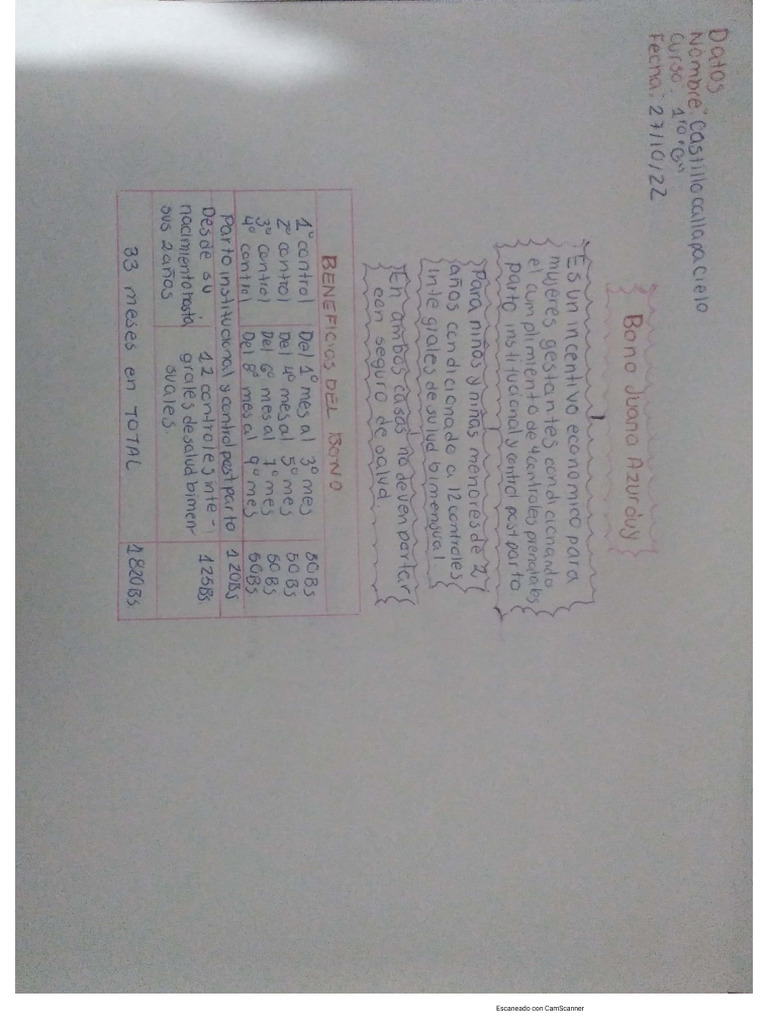 Datos
Nombre: Castillo callapa cielo
Curso: 1ro "B"
Fecha: 27/10/22
Bono Juana Azurduy
Es un incentivo economico para
mujeres gestantes condicionando
el cumplimiento de 4 controles prenatales
parto institucional y control post parto
Para niños y niñas menores de 2
años condicionado a 12 controles
integrales de salud bimensual
En ambos casos no deven portar
con seguro de salud.
BENEFICIOS DEL BONO
1º control Del 1º mes al 3º mes 50Bs
2º control Del 4º mes al 5º mes 50Bs
3º control Del 6º mes al 7º mes 50Bs
4º control Del 8º mes al 9º mes 50Bs
Parto institucional y control post parto 120Bs
Desde su nacimiento hasta sus 2 años 12 controles inte-grales de salud bimen suales. 125Bs.
33 meses en TOTAL 1820Bs.
Escaneado con CamScanner